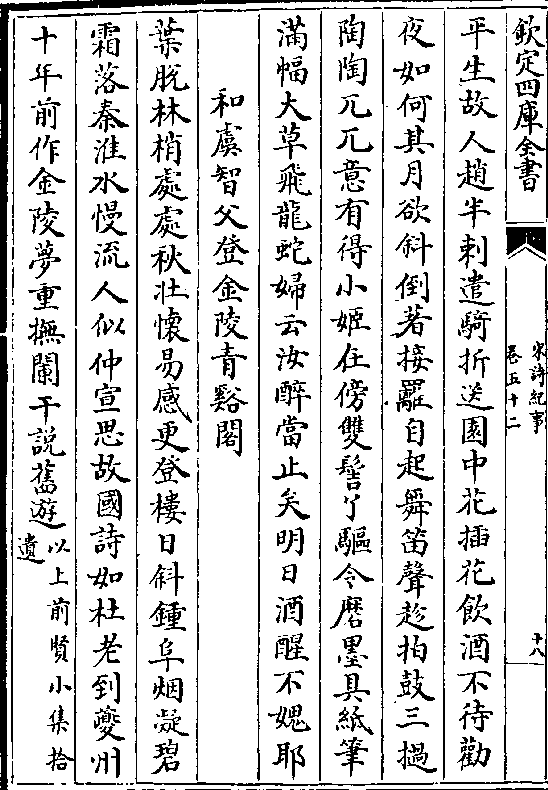 欽定四庫全書
宋詩紀事
卷五十二
十八
平生故人趙半刺遣騎折送園中花插花飲酒不待勸
夜如何其月欲斜倒著接䍦自起舞笛聲趁拍鼓三撾
陶陶兀兀意有得小姬在傍雙髻丫驅令磨墨具紙筆
滿幅大草飛龍蛇婦云汝醉當止矣明日酒醒不媿耶
和虞智父登金陵青谿閣
葉脫林梢處處秋壯懷易感更登樓日斜鍾阜烟凝碧
霜落秦淮水慢流人似仲宣思故國詩如杜老到夔州
十年前作金陵夢重撫闌干說舊遊以上前賢小集拾
遺